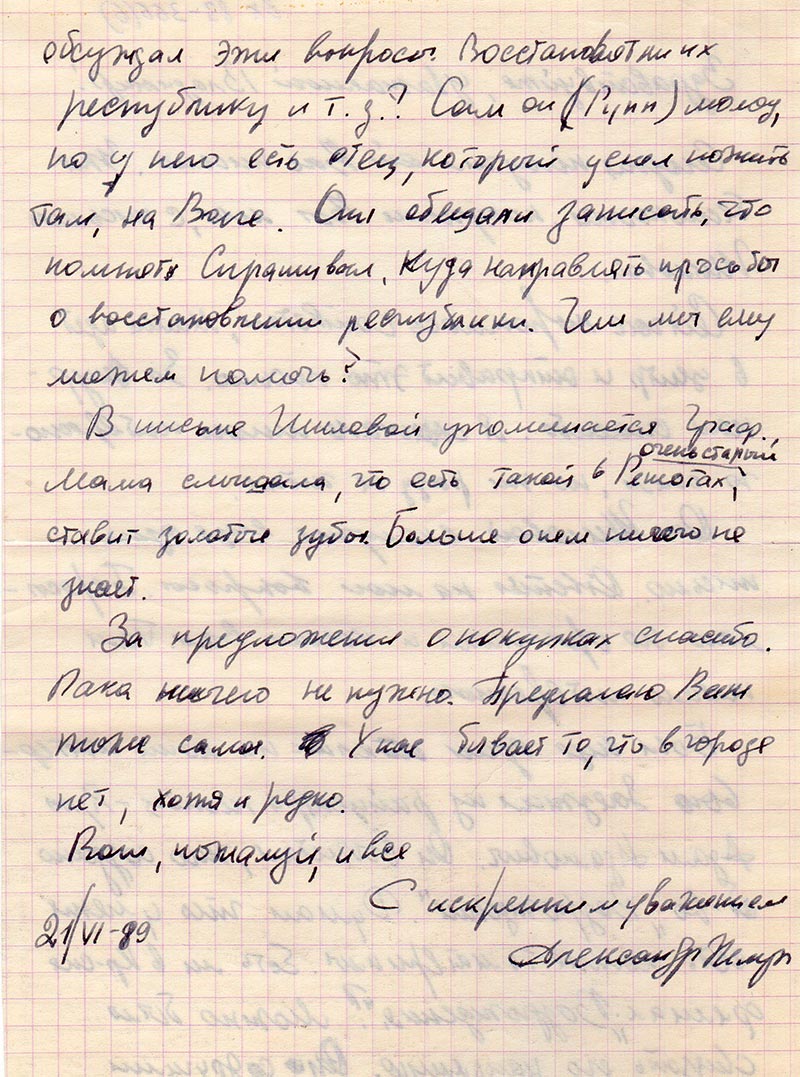 обсуждал эти вопросы. Восстановят ли их
республику и т. д.? Сам он (Рупп) молод,
но у него есть отец, который успел пожить
там, на Волге. Они обещали записать, что
помнят. Спрашивал, куда направлять просьбы
о восстановлении республики. Чем мы ему
можем помочь?
В письме Шиловой упоминается Граф.
очень старый
Мама слышала, что есть такой в Решотах,
ставит золотые зубы. Больше о нем ничего не
знает.
За предложения о покупках спасибо.
Пока ничего не нужно. Предлагаю Вам
тоже самое. У нас бывает то, что в городе
нет, хотя и редко.
Вот, пожалуй, и все
С искренним уважением
21/VI-89
Александр